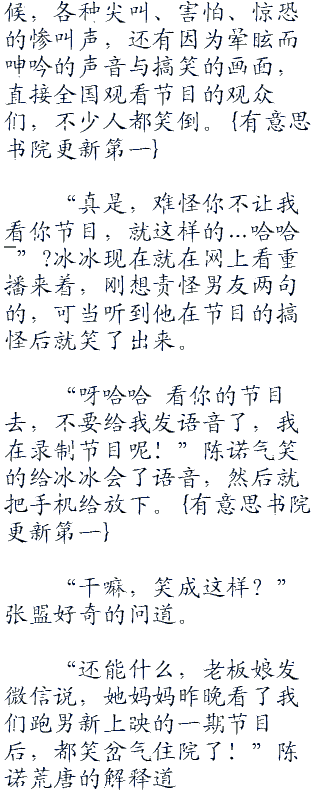 候，各种尖叫、害怕、惊恐
的惨叫声，还有因为晕眩而
呻吟的声音与搞笑的画面，
直接全国观看节目的观众
们，不少人都笑倒。{有意思
书院更新第一}
“真是，难怪你不让我
看你节目，就这样的…哈哈
~”?冰冰现在就在网上看重
播来着，刚想责怪男友两句
的，可当听到他在节目的搞
怪后就笑了出来。
“呀哈哈 看你的节目
去，不要给我发语音了，我
在录制节目呢！”陈诺气笑
的给冰冰会了语音，然后就
把手机给放下。{有意思书院
更新第一}
“干嘛，笑成这样？”
张盟好奇的问道。
“还能什么，老板娘发
微信说，她妈妈昨晚看了我
们跑男新上映的一期节目
后，都笑岔气住院了！”陈
诺荒唐的解释道